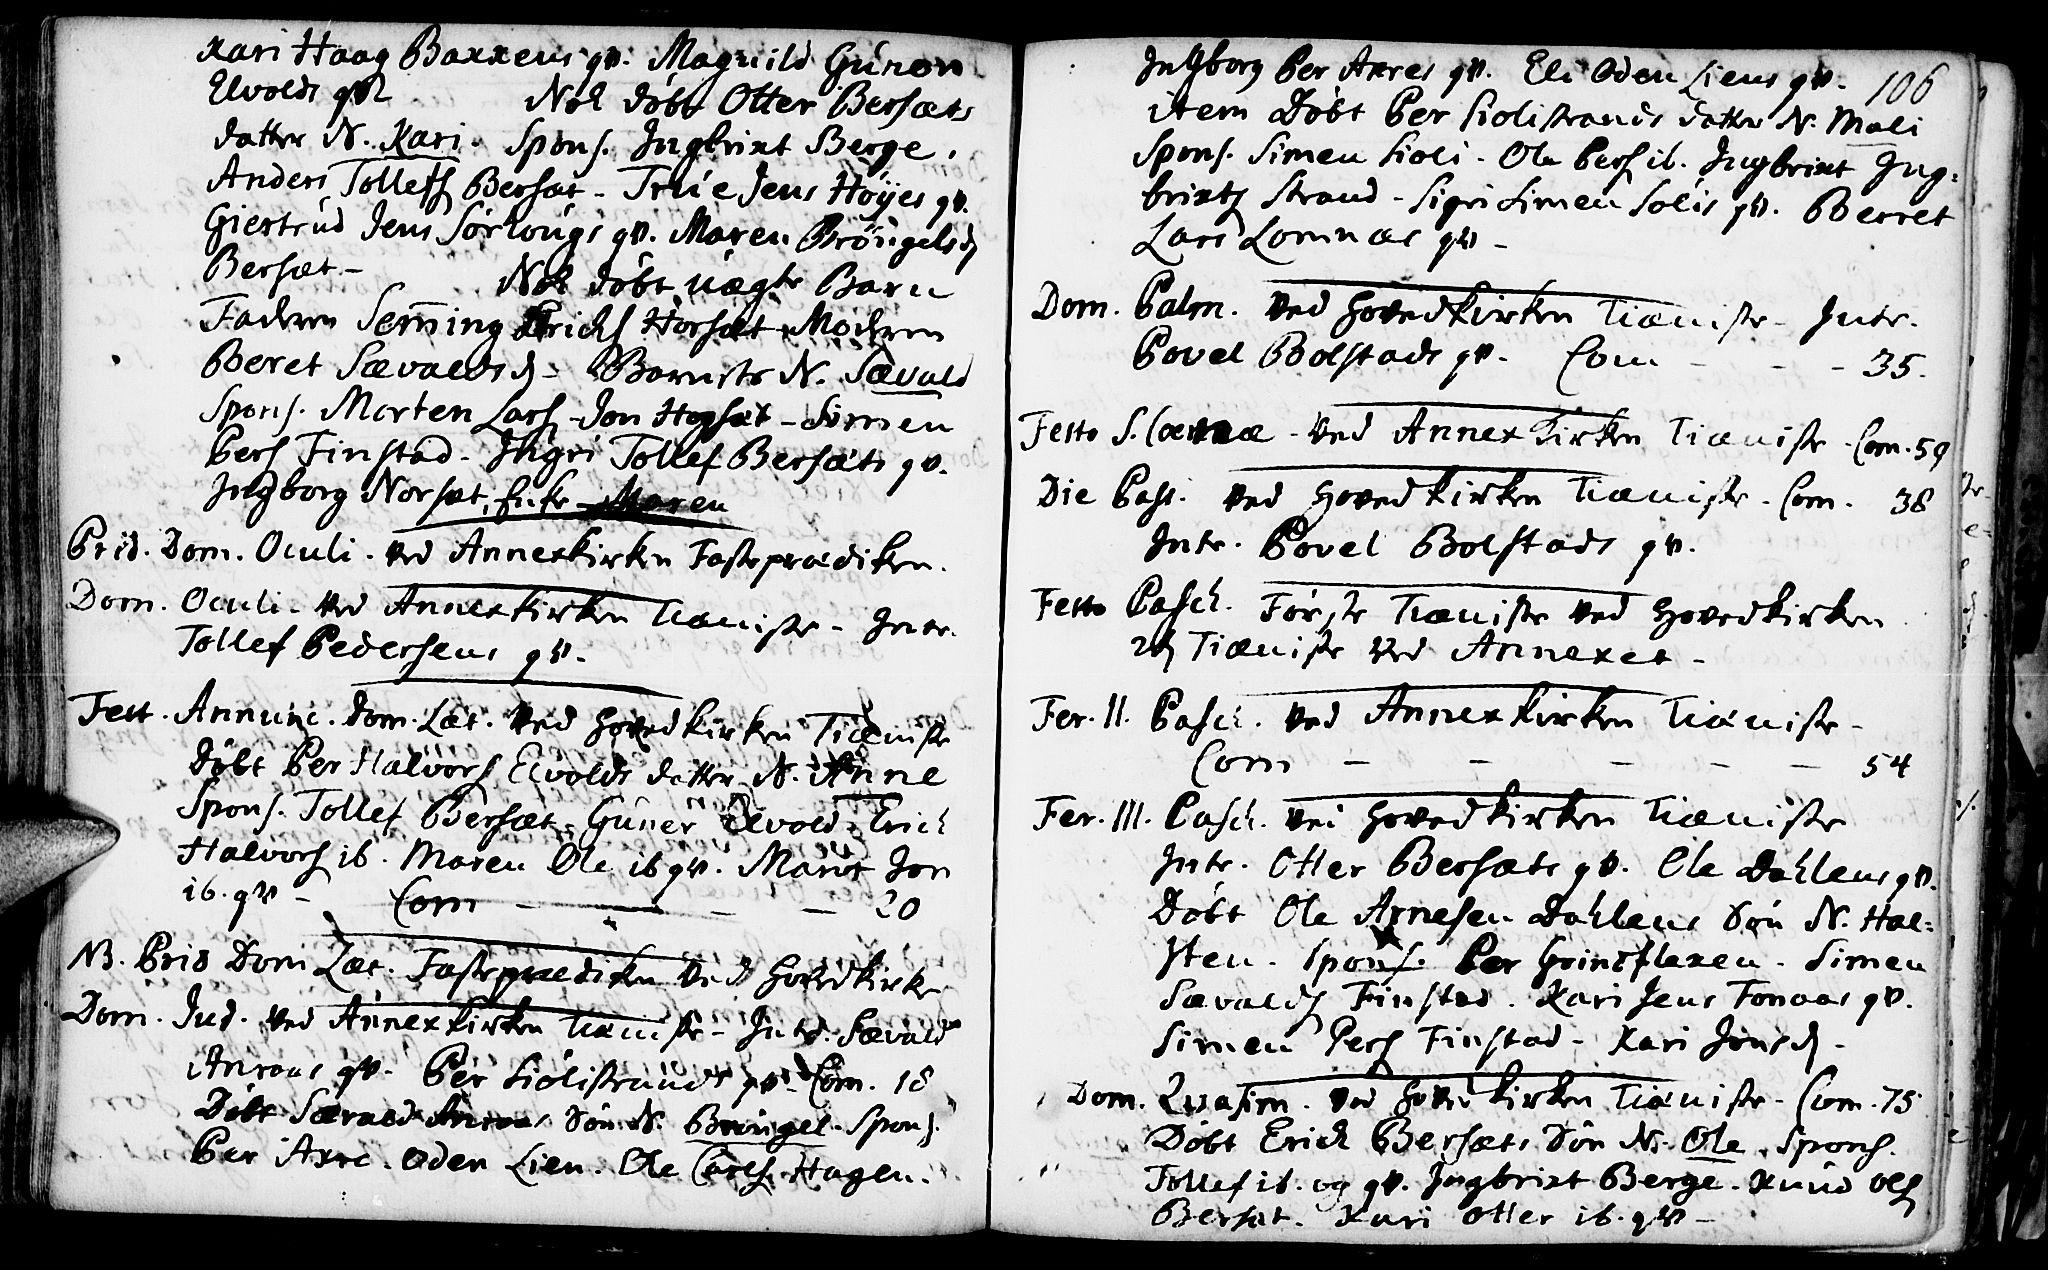 Kari Haag Bakkens qv. Magnild Guner
Elvolds qv Nok döbt Otter Bersæts
datter N. Kari. Spons. Ingbrixt Berge.
Anders Tollefs Bersæt - True Jens Höyes qv.
Giertrud Jens Sörlöugs qv. Maren Bröngelsd
Bersæt - Nok döbt uægte Barn
Faderen Seming Erichs Horsæt Moderen
Beret Sævaldsd - Barnets N. Sævald
Spons. Morten Lars - Jon Hogsæt - Simen
Pers Finstad - Ingri Tollef Bersæts qv.
Ingborg Norsæt, Enke - Maren
Prid. Dom. Oculi. ved Annexkirken Fasteprædiken.
Dom. Oculi - ved Annexkirken Tiæniste - Intr.
Tollef Pedersens qv.
Fest. Annunc. Dom. Læt. ved Hovedkirken Tiæniste
Döbt Per Halvors Elvolds datter N. Anne
Spons. Tollef Bersæt - Guner Elvold - Erich
Halvors ib. Maren Ole ib qv. Marit Jon
ib. qv - Com - - - - 20
NB. Prid Dom Læt. Fasteprædiken ved Hovedkirke
Dom. Jud. ved Annexkirken Tiæniste - Intr. Sævald
Anraas qv. Per Liolistrands qv. Com. 18
Döbt Sævald Anraas Sön N. Bröngel. Spons.
Per Axre. Oden Lien. Ole Carls. Hagen.
106
Ingborg Per Axres qv. Eli Oden Liens qv.
item Döbt Per Liolistrands datter N. Mali
Spons. Simen Lioli - Ole Pers ib. Ingbrixt Ing-
brixts Strand - Sigri Simen Solis qv. Berret
Lars Lomnæs qv -
Dom. Palm. ved Hovedkirken Tiæniste - Intr.
Povel Bolstads qv. Com - - - 35.
Festo S. Coenæ - ved Annexkirken Tiæniste - Com. 59
Die Pass. ved Hovedkirken Tiæniste - Com. 38
Intr. Povel Bolstads qv.
Festo Pasch. Förste Tiæniste ved Hovedkirken
2d Tiæniste ved Annexet -
Fer. II. Pasch. ved Annexkirken Tiæniste -
Com - - - - - 54
Fer. III. Pasch. ved Hovedkirken Tiæniste
Intr. Otter Bersæts qv. Ole Dahlens qv.
Döbt Ole Arnesen Dahlens Sön N. Hal-
sten. Spons. Per Grindflaxen. Simen
Sævalds Finstad. Kari Jens Fonaas qv.
Simen Pers Finstad - Kari Jonsd -
Dom. Quasim. ved Hovedkirken Tiæniste - Com. 75
Döbt Erich Bersæts Sön N. Ole. Spons.
Tollef ib. og qv. Ingbrixt Berge. Knud Ols
Bersæt. Kari Otter ib. qv -